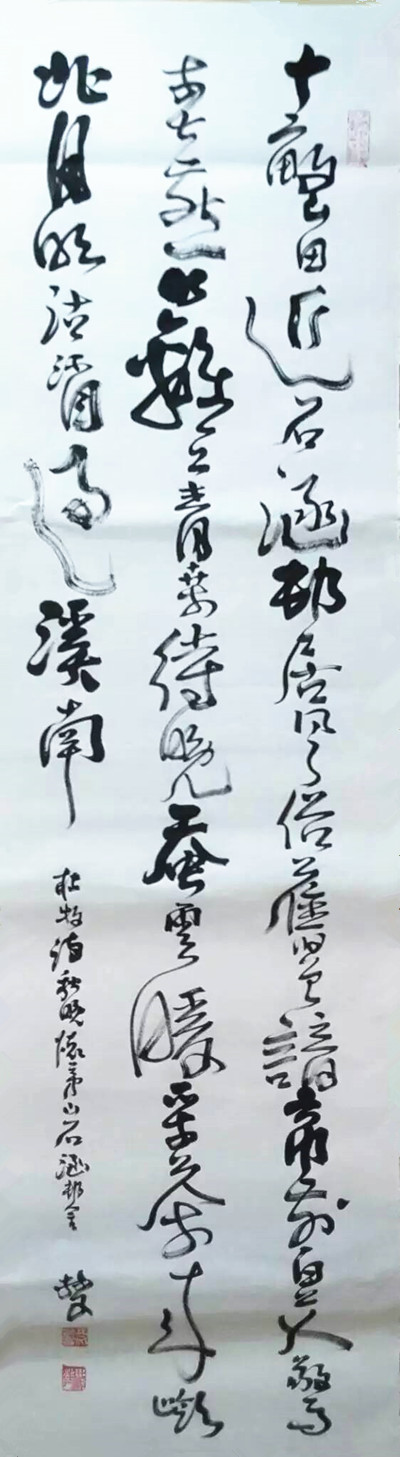 十畝山田近石涵村居風俗舊曾諳帘前白艾驚
春燕籬上青桑待晚蚕雲暖采茶来嶺
北月明沽酒過溪南
杜牧诗秋晚懷茅山石涵村舍